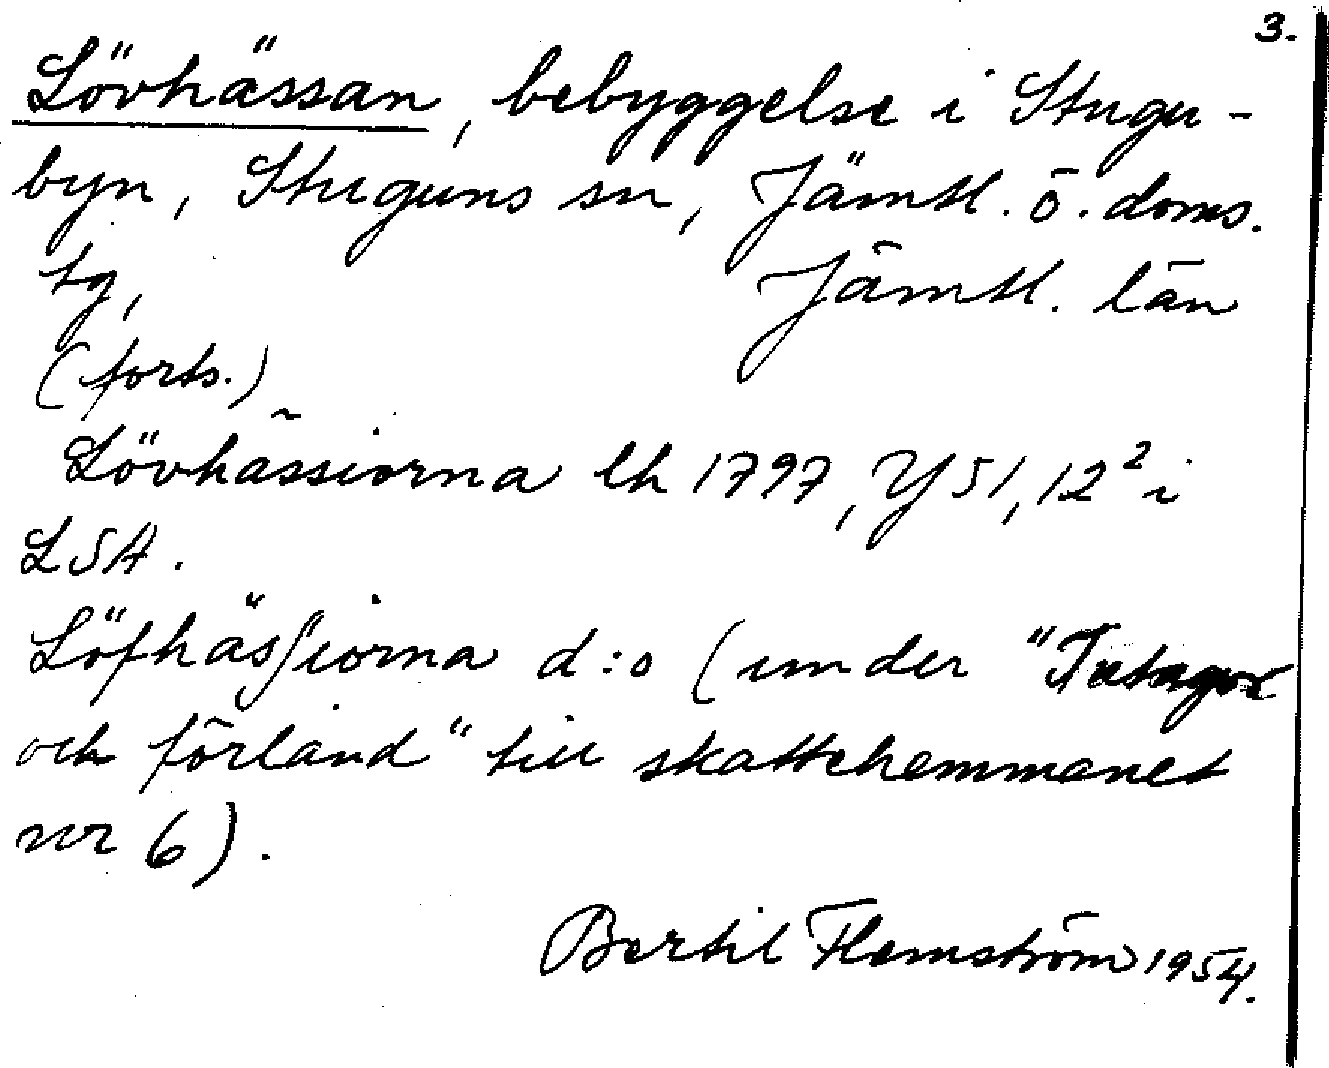 3.
Lövhässan, bebyggelse i Stugu-
byn, Stuguns sn, Jämtl. ö. doms.
tg, Jämtl. län
(forts.)
Lövhässiorna lh 1797, Y 51, 12² i
LSA.
Löfhäsſiorna d:o (under "Intagor
och förland" till skattehemmanet
nr 6).
Bertil Flemström 1954.